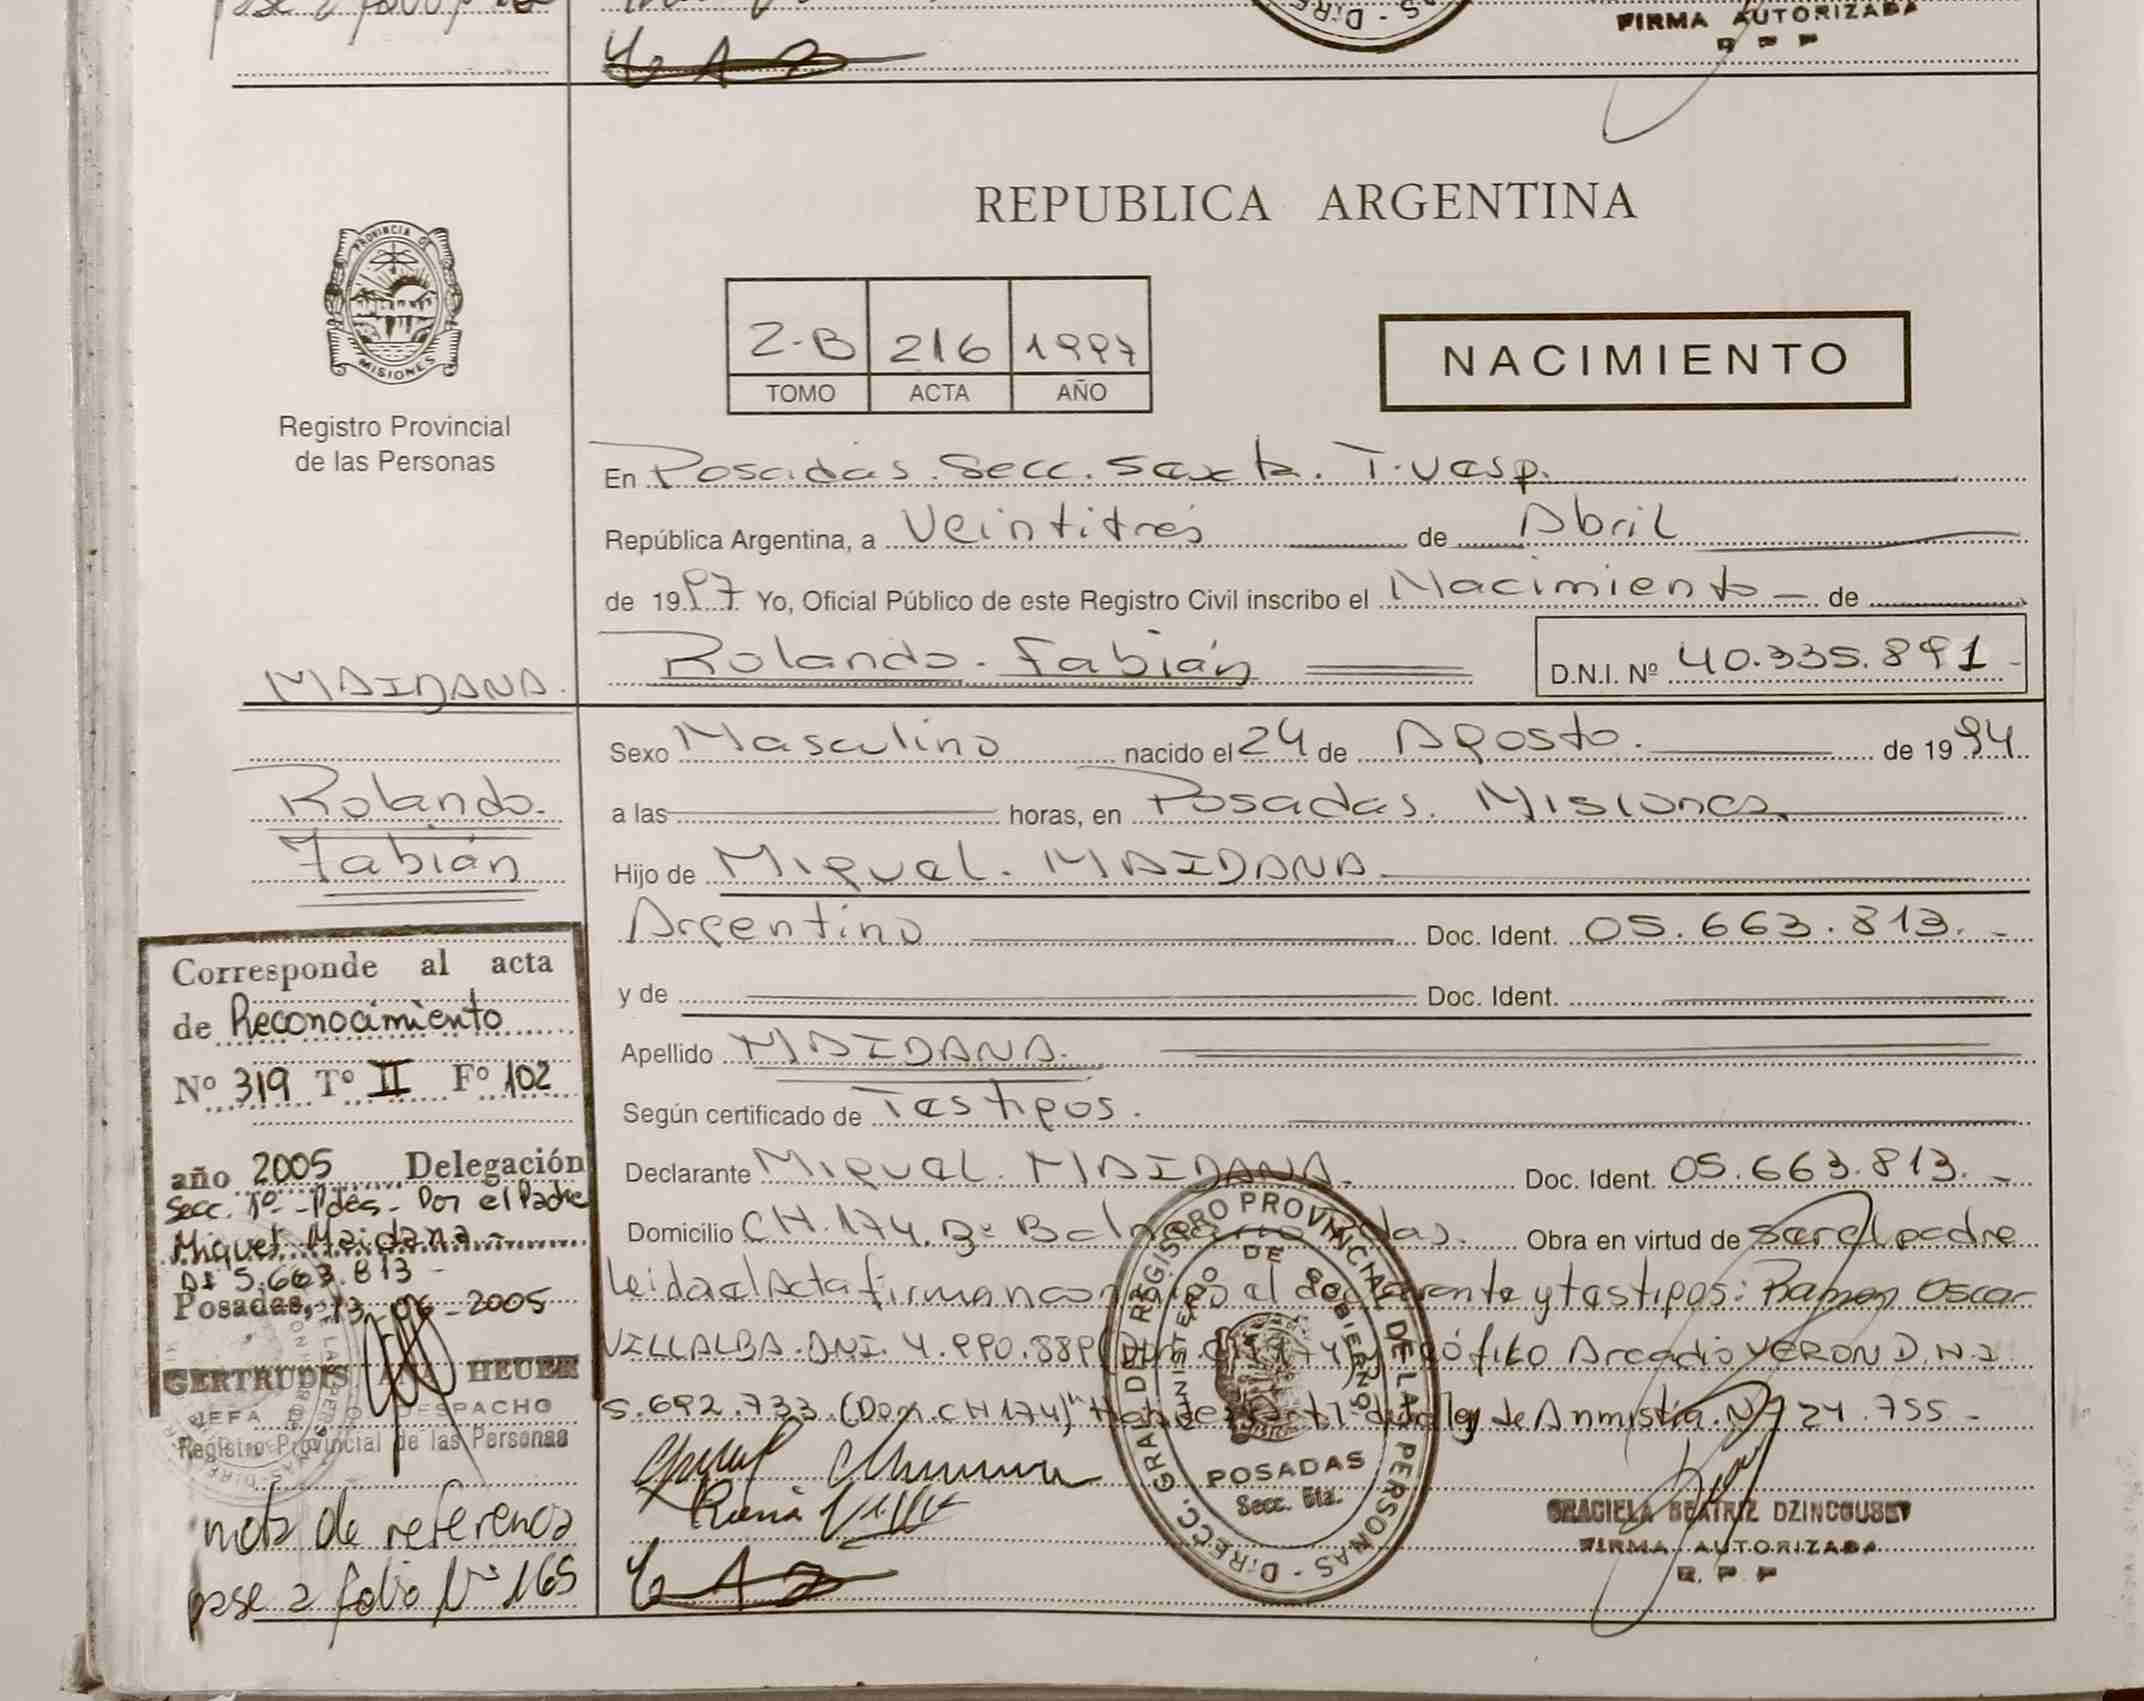 FIRMA AUTORIZADA
R P P
REPUBLICA ARGENTINA
PROVINCIA DE
MISIONES
Registro Provincial
de las Personas
2-B 216 1997
TOMO ACTA AÑO
NACIMIENTO
En Posadas. Secc. Sexta. T. vesp.
República Argentina, a Veintitrés de Abril
de 1997 Yo, Oficial Público de este Registro Civil inscribo el Nacimiento de
Rolando. Fabián D.N.I. Nº 40.335.891
MAIDANA.
Rolando.
Fabián
Sexo Masculino nacido el 24 de Agosto. de 1994
a las horas, en Posadas. Misiones
Hijo de Miguel. MAIDANA
Argentino Doc. Ident. 05.663.813.
y de Doc. Ident.
Apellido MAIDANA.
Según certificado de Testigos.
Declarante Miguel. MAIDANA. Doc. Ident. 05.663.813.
Domicilio CH.174. Bº Obra en virtud de ser el padre
Leida el Acta firman el y testigos: Ramon Oscar
VILLALBA. DNI. 4.990.889 Arcadio VERON D.N.I.
5.692.733. (Dom. CH 174) ley de Amnistía. Nº 24.755
Corresponde al acta
de Reconocimiento
Nº 319 Tº II Fº 102
año 2005 Delegación
Secc. 1º - Pdas - Por el Padre
Miguel Maidana
DI 5.663.813
Posadas, 13-06-2005
GERTRUDIS ANA HEUER
JEFA DESPACHO
Registro Provincial de las Personas
nota de referencia
pase a folio Nº 165
DIRECC. GRAL DE REGISTRO PROVINCIAL DE LAS PERSONAS
MINISTERIO DE GOBIERNO
POSADAS
Secc. 6ta.
GRACIELA BEATRIZ
FIRMA AUTORIZADA
R. P. P